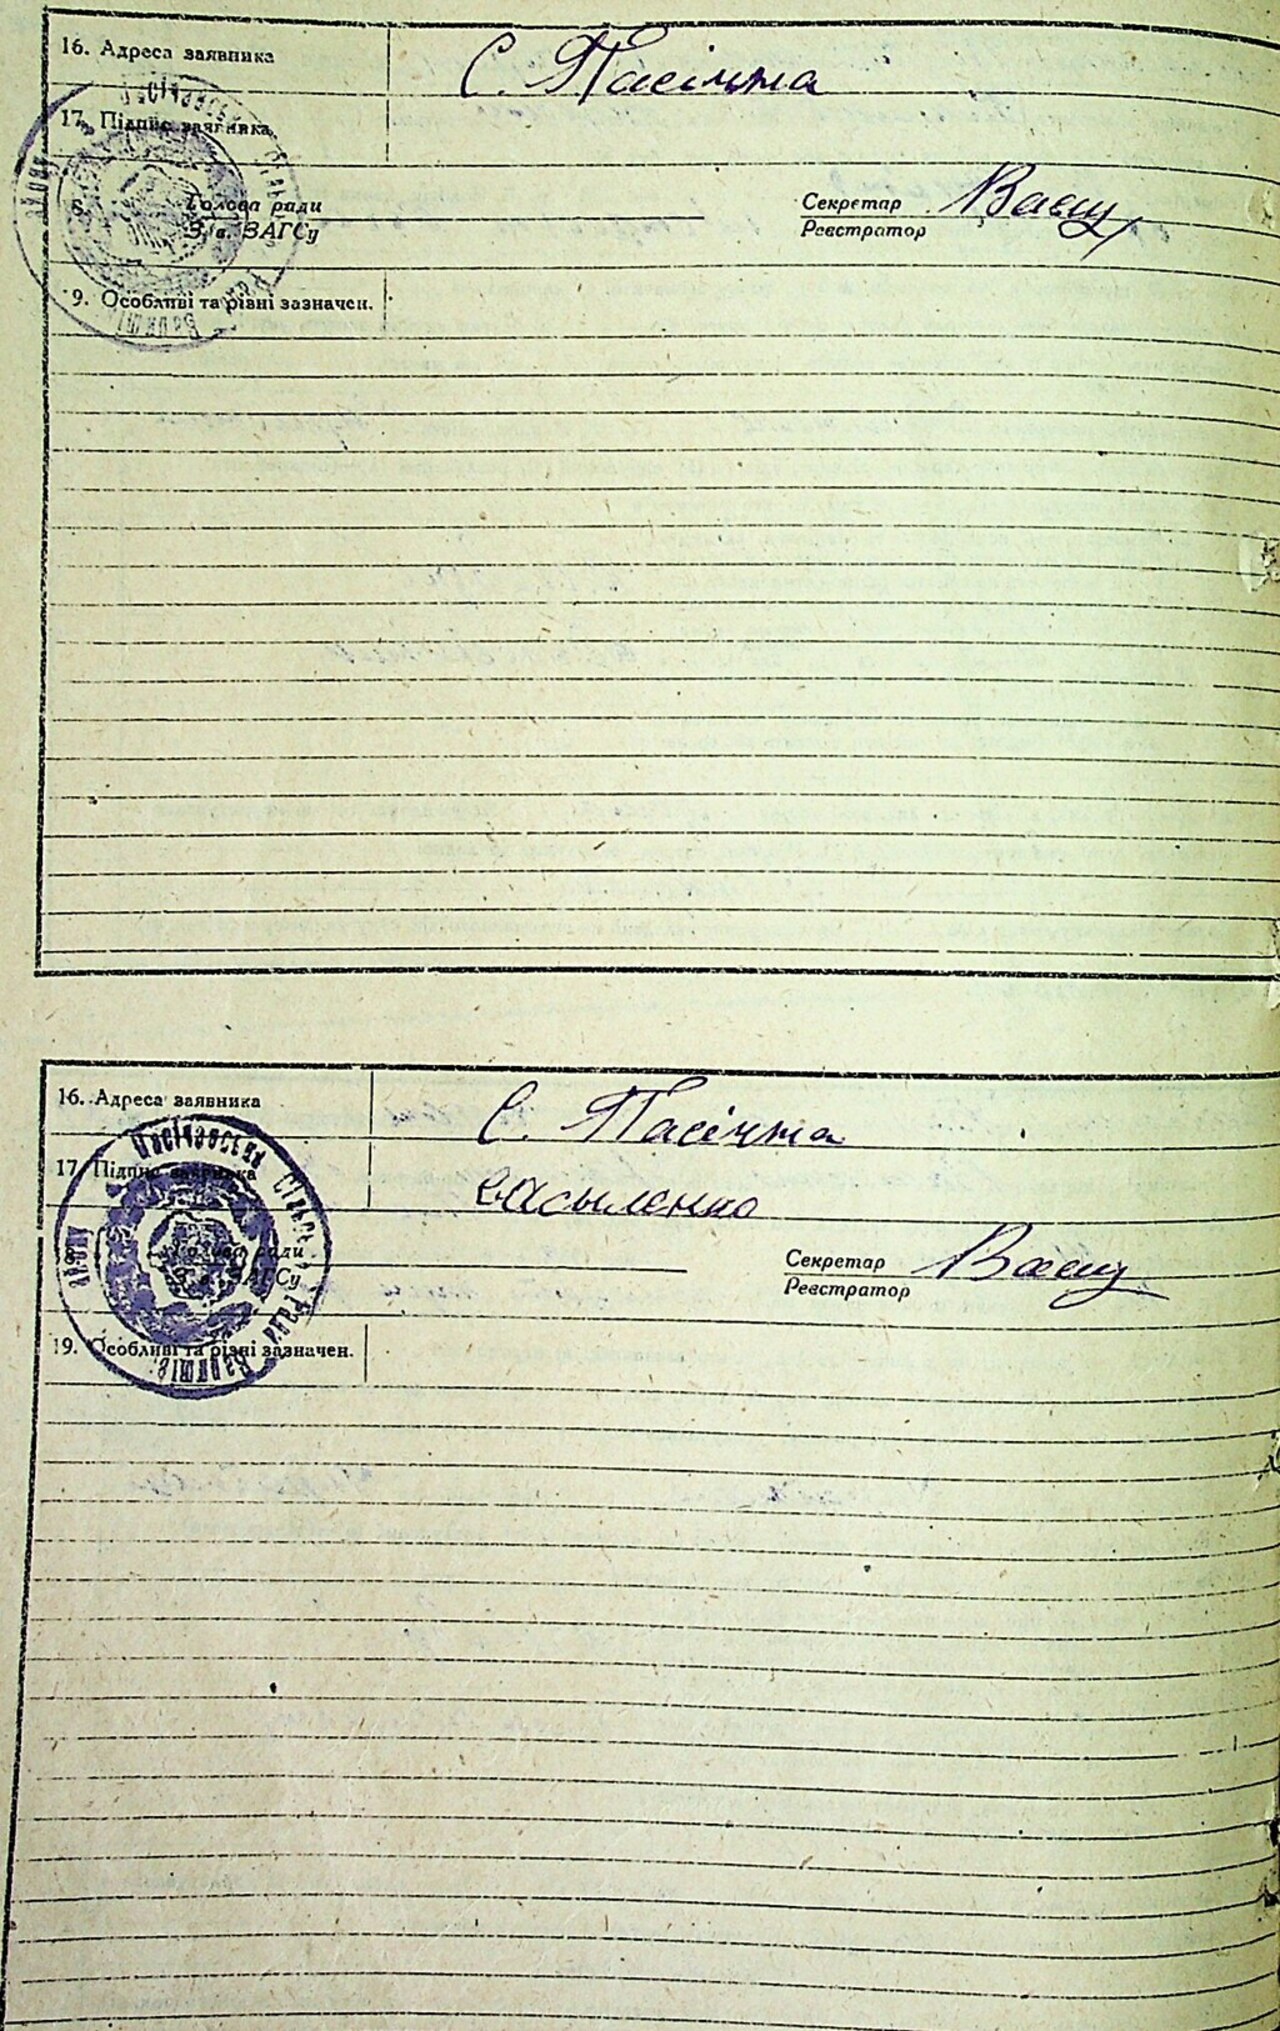 16. Адреса заявника С. Пасічна
17. Підпис заявника
Голова ради Секретар
Зав. ЗАГСу Реєстратор
9. Особливі та різні зазначен.
16. Адреса заявника С. Пасічна
17. Підпис заявника василенко
Голова ради Секретар
Зав. ЗАГСу Реєстратор
19. Особливі та різні зазначен.